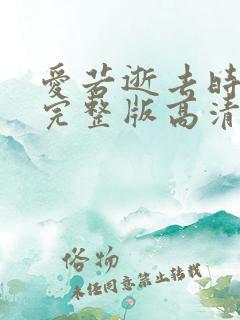 愛若逝去時
完整版高清
俗物
未经同意禁止转载